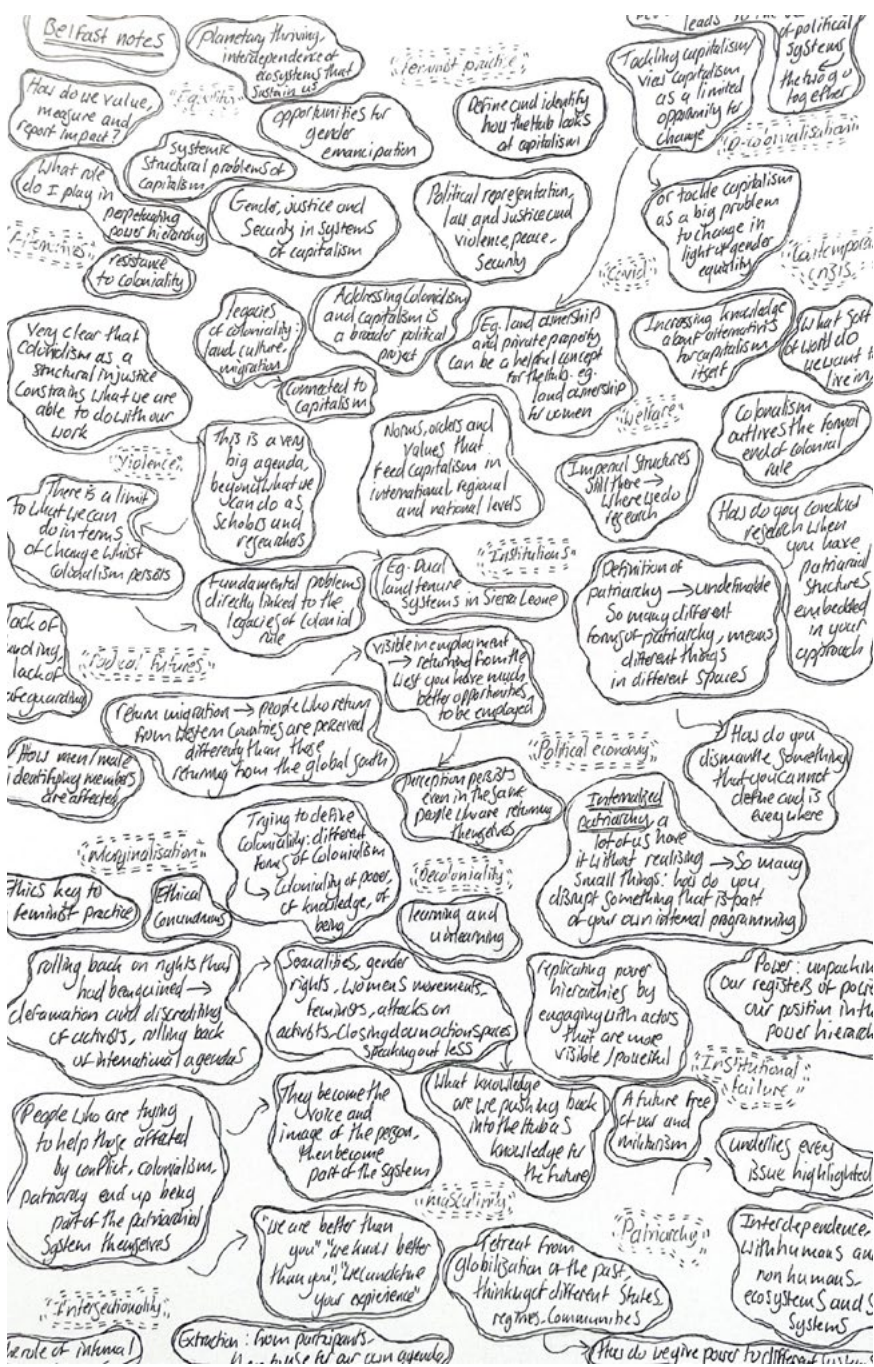 Belfast notes
planetary thriving,
interdependence of
ecosystems that
sustain us
"Feminist practice"
leads to the
of political
systems
the two go
together
Tackling capitalism/
view capitalism
as a limited
opportunity to
change
How do we value,
measure and
report impact?
"Equality"
opportunities for
gender
emancipation
Define and identify
how the Hub looks
at capitalism
"Decolonialisation"
systemic
structural problems of
capitalism
What role
do I play in
perpetuating
power hierarchy
resistance
to coloniality
Gender, justice and
Security in systems
of capitalism
Political representation,
law and justice and
violence, peace,
Security
or tackle capitalism
as a big problem
to change in
light of gender
equality
"Covid"
"Contemporary
crisis
Very clear that
colonialism as a
structural injustice
constrains what we are
able to do with our
work
legacies
of coloniality:
land culture,
migration
Connected to
capitalism
Addressing colonialism
and capitalism is
a broader political
project
Eg. land ownership
and private property
can be a helpful concept
for the hub. eg.
land ownership
for women
Increasing knowledge
about alternatives
for capitalism
itself
What sort
of world do
we want to
live in
"Welfare"
"Violence"
This is a very
big agenda,
beyond what we
can do as
scholars and
researchers
Norms, orders and
values that
feed capitalism in
international, regional
and national levels
Imperial structures
still there →
where we do
research
Colonialism
outlives the formal
end of colonial
rule
There is a limit
to what we can
do in terms
of change whilst
colonialism persists
How do you conduct
research when
you have
patriarchal
structures
embedded
in your
approach
"Institutions"
Fundamental problems
directly linked to the
legacies of colonial
rule
Eg. Dual
land tenure
systems in Sierra Leone
Definition of
patriarchy → undefinable
So many different
forms of patriarchy, means
different things
in different spaces
lack of
funding,
lack of
safeguarding
"Radical futures"
visible in employment
→ returning from the
West you have much
better opportunities
to be employed
return migration → people who return
from Western Countries are perceived
differently than those
returning from the global south
How men/male
identifying members
are affected
"Political economy"
How do you
dismantle something
that you cannot
define and is
everywhere
perception persists
even in the same
people who are returning
themselves
Trying to define
coloniality: different
forms of colonialism
↳ Coloniality of power,
of knowledge, of
being
Internalised
patriarchy a
lot of us have
it without realising → So many
small things: how do you
disrupt something that is part
of your own internal programming
"Marginalisation"
"Decoloniality"
Ethics key to
feminist practice
Ethical
conundrums
learning and
unlearning
rolling back on rights that
had been gained →
defamation and discrediting
of activists, rolling back
of international agendas
Sexualities, gender
rights, women's movements,
feminists, attacks on
activists. Closing down action spaces
speaking out less
replicating power
hierarchies by
engaging with actors
that are more
visible/powerful
Power: unpacking
our registers of power
our position in the
power hierarchy
"Institutional
failure"
People who are trying
to help those affected
by conflict, colonialism,
patriarchy end up being
part of the patriarchal
system themselves
They become the
voice and
image of the person,
then become
part of the system
What knowledge
are we pushing back
into the Hub as
knowledge for
the future
A future free
of war and
militarism
underlies every
issue highlighted
"Masculinity"
"Patriarchy"
"we are better than
you", "we know better
than you", "we can define
your experience"
Retreat from
globalisation of the past,
thinking of different States,
regimes, communities
Interdependence,
with humans and
non humans,
ecosystems and
systems
"Intersectionality"
the role of internal
Extraction: from participants,
then to use for our own agenda
How do we give power to different